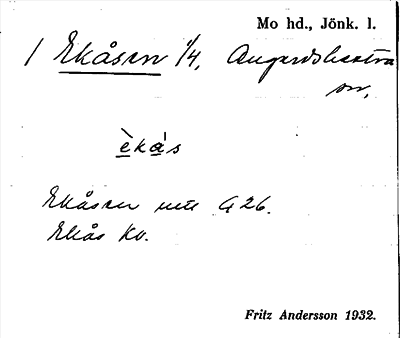 Mo hd., Jönk. l.
1 Ekåsen 1/4,
sn,
èkás
Ekåsen G 26.
Ekås Kv.
Fritz Andersson 1932.